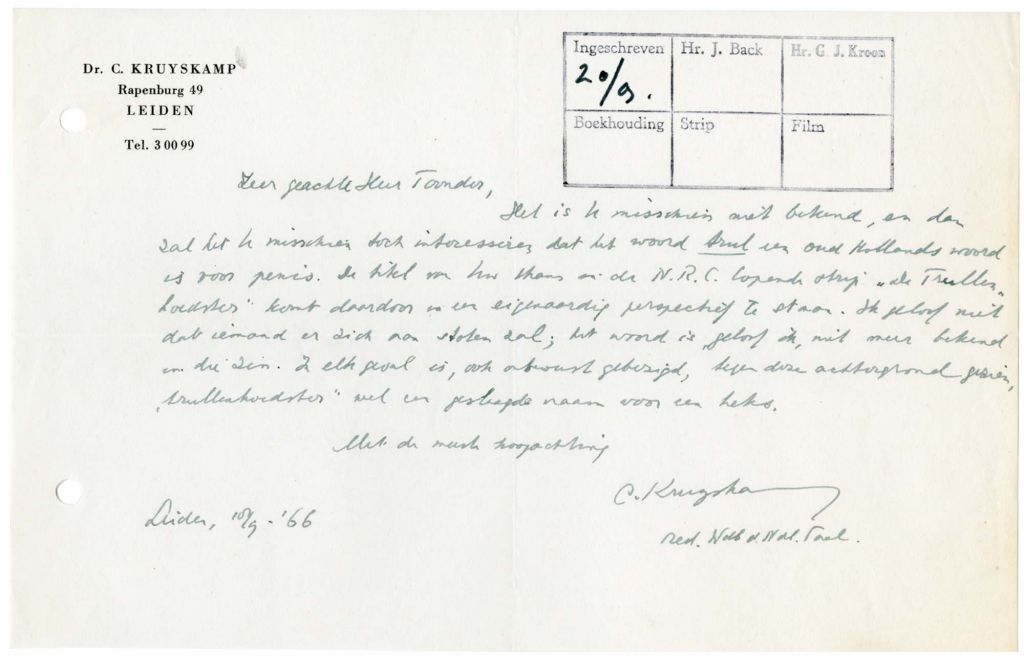 Dr. C. KRUYSKAMP
Rapenburg 49
LEIDEN
Tel. 3 00 99
Ingeschreven
20/9.
Hr. J. Back
Hr. G. J. Kroon
Boekhouding
Strip
Film
Zeer geachte Heer Toonder,
Het is U misschien niet bekend, en dan
zal het U misschien toch interesseren dat het woord trul een oud Hollands woord
is voor penis. De titel van Uw thans in de N.R.C. lopende strip „de Trullen-
hoedster" komt daardoor in een eigenaardig perspectief te staan. Ik geloof niet
dat iemand er zich aan stoten zal; het woord is, geloof ik, niet meer bekend
in die zin. In elk geval is, ook onbewust gebezigd, tegen deze achtergrond gezien,
„trullenhoedster" wel een geslaagde naam voor een heks.
Met de meeste hoogachting
C. Kruyskamp
red. Wdb. d. Ndl. Taal.
Leiden, /9 - '66